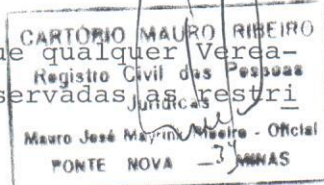 CARTÓRIO MAURO RIBEIRO
ue qualquer Verea-
Registro Civil das Pessoas
servadas as restri
Jurídicas
Mauro José Mayrink - Oficial
PONTE NOVA - MINAS